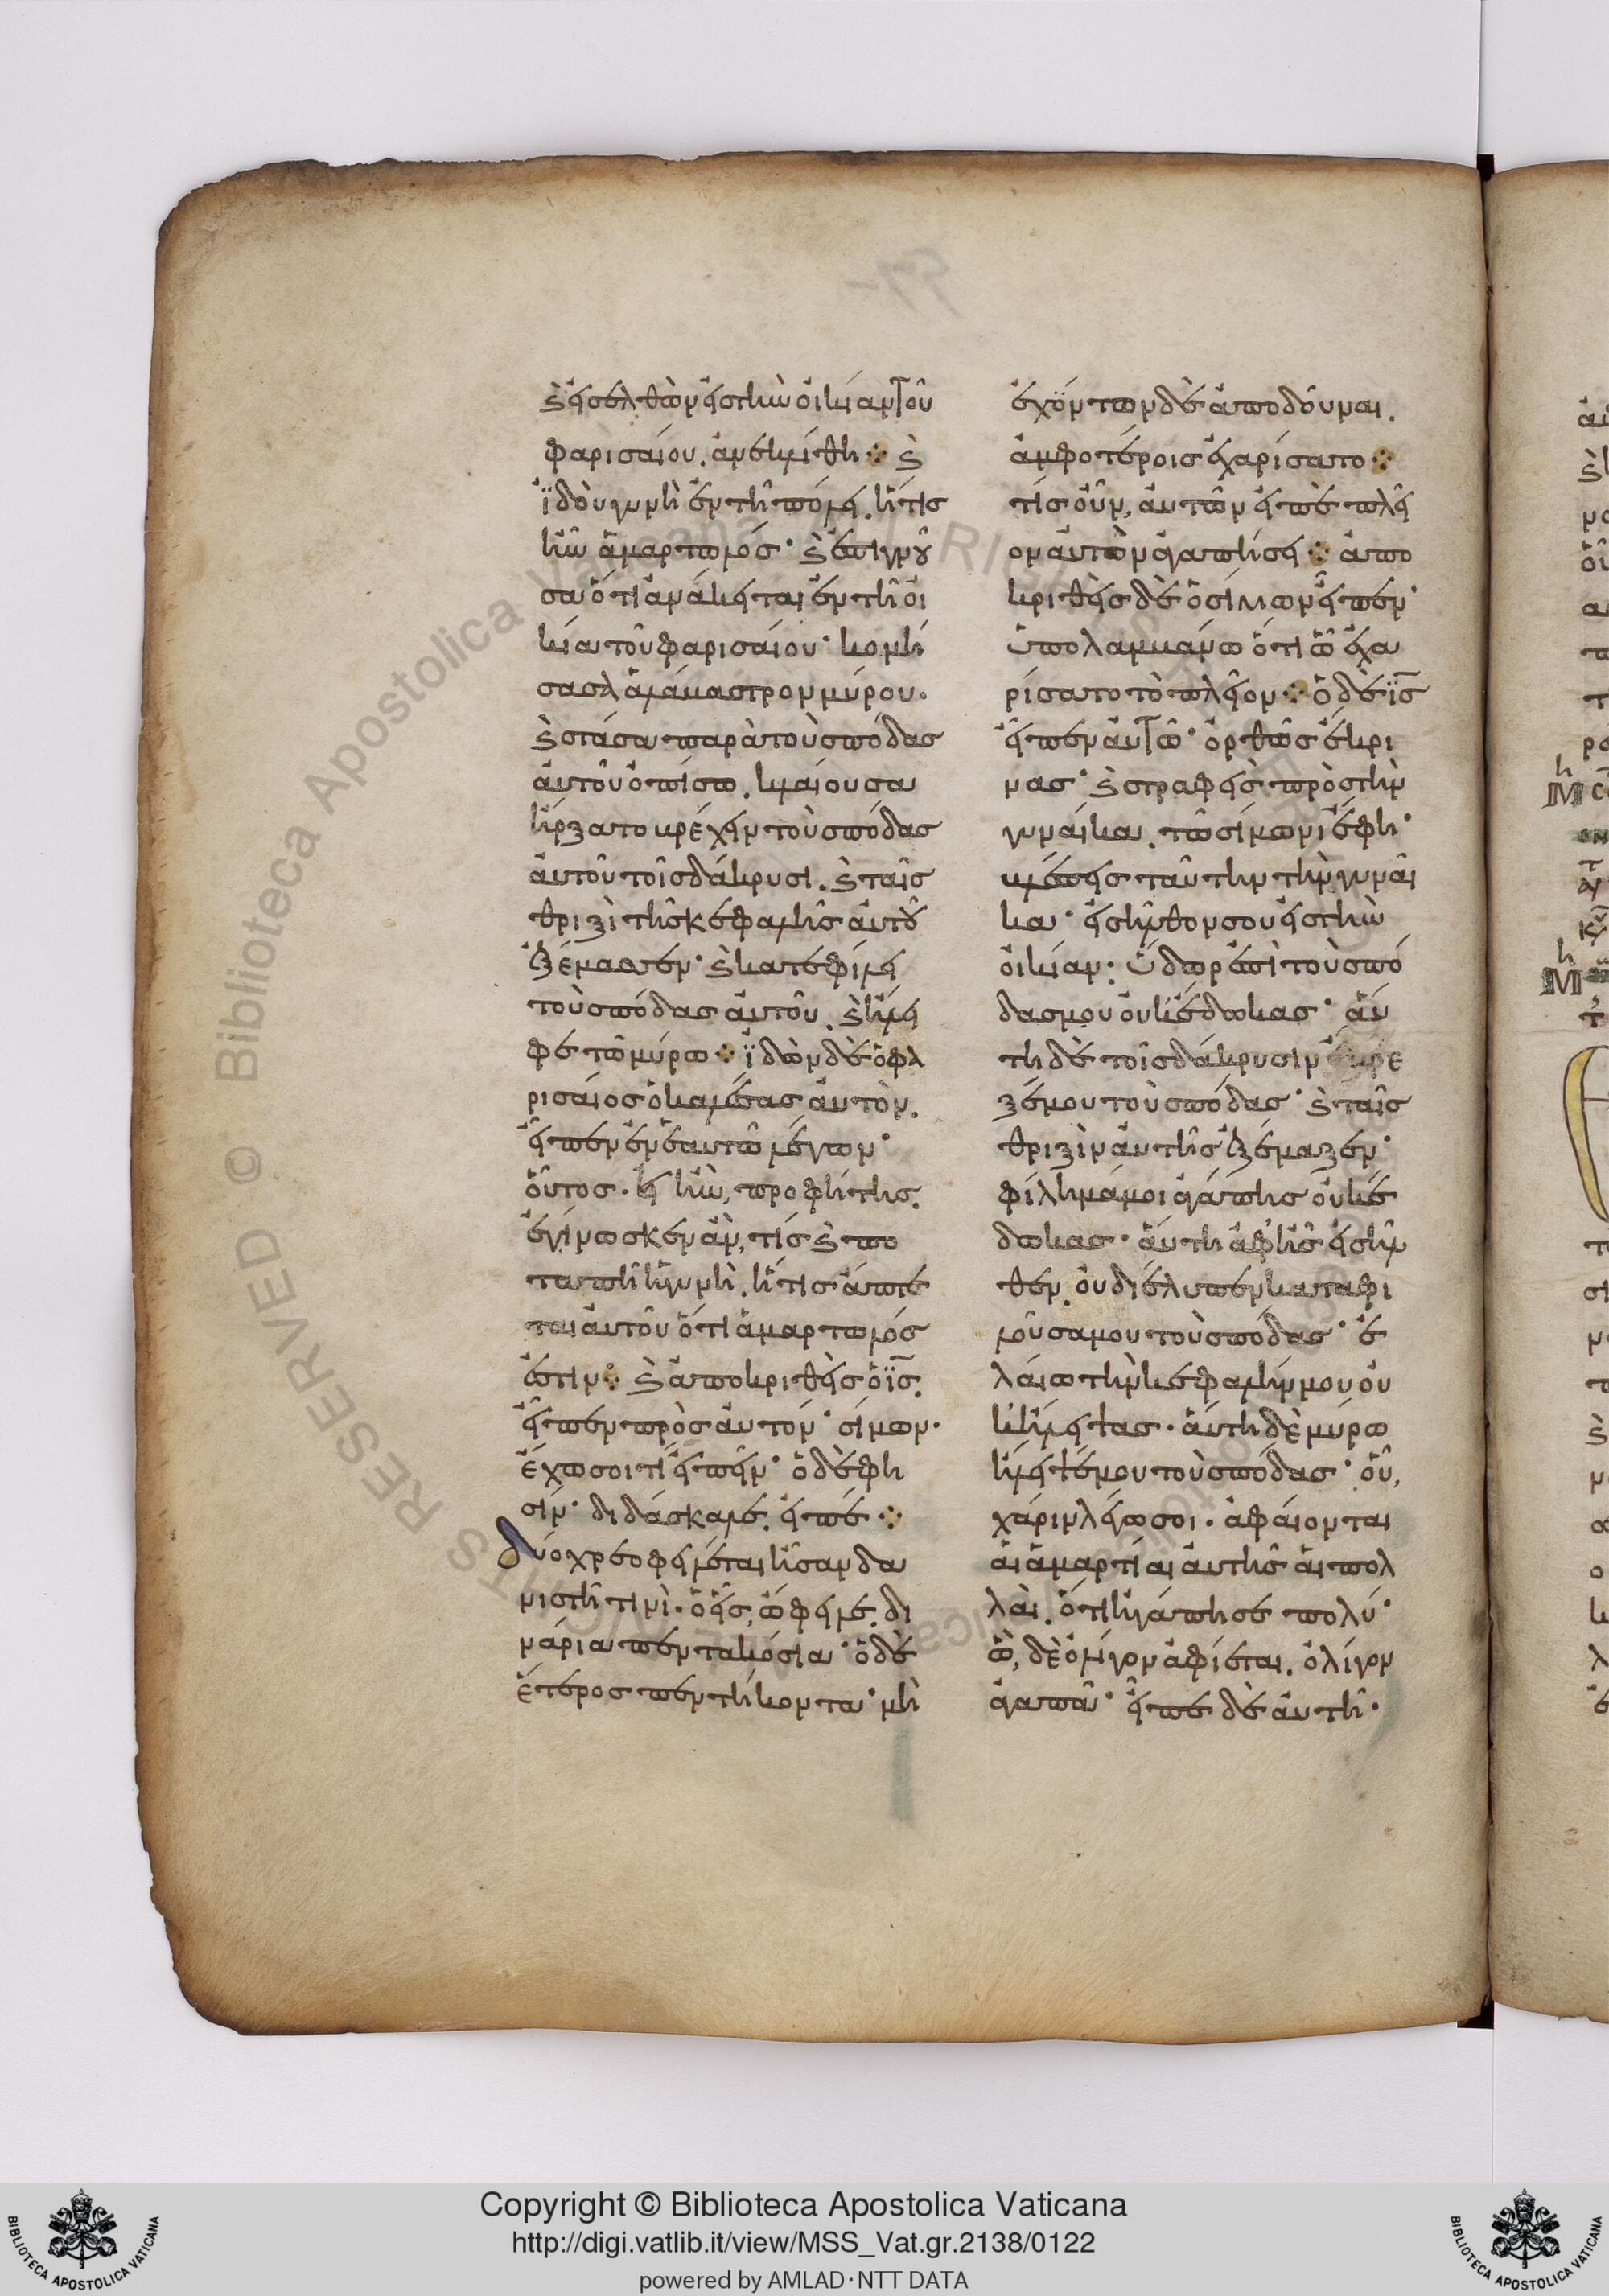 ϗ εἰσελθὼν εἰς τὴν οἰκίαν τοῦ
φαρισαίου. ἀνεκλίθη ⁘ ϗ
ἰ̈δοὺ γυνὴ ἐν τῆ πόλει. ἥτις
ἦν ἁμαρτωλός· ϗ ἐπιγνοῦ
σα ὅτι ἀνάκειται ἐν τῆ οἰ
κία τοῦ φαρισαίου· κομή
σασα ἀλάβαστρον μύρου.
ϗ στᾶσα παρὰ τοὺς πόδας
αὐτοῦ ὀπίσω. κλαίουσα
ἤρξατο βρέχειν τοὺς πόδας
αὐτοῦ τοῖς δάκρυσι. ϗ ταῖς
θριξὶ τῆς κεφαλῆς αὐτοῦ
ἐξέμασσεν· ϗ κατεφίλει
τοὺς πόδας αὐτοῦ. ϗ ἤλει
φε τῶ μύρω ⁘ ἰ̈δὼν δὲ ὁ φα
ρισαῖος ὁ καλέσας αὐτὸν.
εἶπεν ἐν ἑαυτῶ λέγων·
οὗτος. εἰ ἦν, προφήτης.
ἐγίνωσκεν ἂν, τίς ϗ πο
ταπὴ ἡ γυνὴ. ἥτις ἅπτε
ται αὐτοῦ ὅτι ἁμαρτωλός
ἐστιν ⁘ ϗ ἀποκριθεὶς ὁ ἰ̈ς.
εἶπεν πρὸς αὐτον· σίμων.
ἔχω σοι τί εἰπεῖν· ὁ δέ φη
σίν· διδάσκαλε. εἰπέ ⁘
δύο χρεοφειλέται ἦσαν δα
νιστῆ τινὶ. ὁ εἷς, ὤφειλε. δι
νάρια πεντακόσια· ὁ δὲ
ἕτερος πεντήκοντα· μὴ
ἐχόντων δὲ ἀποδοῦναι.
ἀμφοτέροις ἐχαρίσατο ⁘
τίς οὖν, αὐτῶν εἰπὲ πλεῖ
ον αὐτὸν ἀγαπήσει ⁘ ἀπο
κριθεὶς δὲ ὁ σίμων εἶπεν·
ὑπολαμβάνω ὅτι ὧ ἐχα
ρίσατο τὸ πλεῖον ⁘ ὁ δὲ ἰ̈ς
εἶπεν αὐτῶ· ὀρθῶς ἔκρι
νας· ϗ στραφεὶς πρὸς τὴν
γυναῖκα. τῶ σίμωνι ἔφη·
βλέπεις ταύτην τὴν γυναῖ
κα· εἰσῆλθον σου εἰς τὴν
οἰκίαν· ὕδωρ ἐπὶ τοὺς πό
δας μου οὐκ ἔδωκας· αὕ
τη δὲ τοῖς δάκρυσιν ἔβρε
ξέ μου τοὺς πόδας· ϗ ταῖς
θριξὶν αὐτῆς ἐξέμαξεν·
φίλημά μοι ἀγάπης οὐκ ἔ
δωκας· αὕτη ἀφ' ἧς εἰσῆλ
θεν. οὐ διέλιπεν καταφι
λοῦσα μου τοὺς πόδας· ἐ
λαίω τὴν κεφαλήν μου οὐ
κ ἤλειψας· αὕτη δὲ μύρω
ἤλειψέ μου τοὺς πόδας· οὗ,
χάριν λέγω σοι· ἀφαίονται
αἱ ἁμαρτίαι αὐτῆς αἱ πολ
λαὶ. ὅτι ἠγάπησε πολύ·
ὧ, δὲ ὀλίγον ἀφίεται. ὀλίγον
ἀγαπᾶ· εἶπε δὲ αὐτῆ·
Copyright © Biblioteca Apostolica Vaticana
http://digi.vatlib.it/view/MSS_Vat.gr.2138/0122
powered by AMLAD·NTT DATA